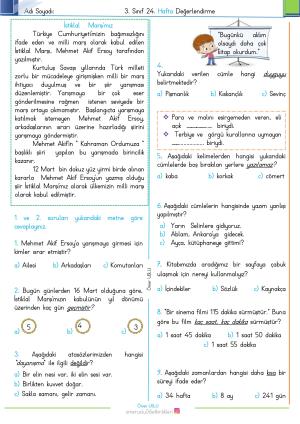 Adı Soyadı:
3. Sınıf 24. Hafta Değerlendirme
İstiklal Marşımız
Türkiye Cumhuriyetimizin bağımsızlığını
ifade eden ve milli marş olarak kabul edilen
İstiklal Marşı, Mehmet Akif Ersoy tarafından
yazılmıştır.
Kurtuluş Savaşı yıllarında Türk milleti
zorlu bir mücadeleye girişmişken milli bir marş
ihtiyacı duyulmuş ve bir şiir yarışması
düzenlenmiştir. Yarışmaya bir çok eser
gönderilmesine rağmen istenen seviyede bir
marş ortaya çıkmamıştır. Başlangıçta yarışmaya
katılmak istemeyen Mehmet Akif Ersoy,
arkadaşlarının ısrarı üzerine hazırladığı şiirini
yarışmaya göndermiştir.
Mehmet Akif'in " Kahraman Ordumuza "
başlıklı şiiri yapılan bu yarışmada birincilik
kazanır.
12 Mart bin dokuz yüz yirmi birde alınan
kararla Mehmet Akif Ersoy'un yazmış olduğu
şiir İstiklal Marşımız olarak ülkemizin milli marşı
olarak kabul edilmiştir.
1. ve 2. soruları yukarıdaki metne göre
cevaplayınız.
1. Mehmet Akif Ersoy'a yarışmaya girmesi için
kimler ısrar etmiştir?
a) Ailesi b) Arkadaşları c) Komutanları
2. Bugün günlerden 16 Mart olduğuna göre,
İstiklal Marşımızın kabulünün yıl dönümü
üzerinden kaç gün geçmiştir?
a) 5 b) 4 c) 3
3. Aşağıdaki atasözlerimizden hangisi
"dayanışma" ile ilgili değildir?
a) Bir elin nesi var, iki elin sesi var.
b) Birlikten kuvvet doğar.
c) Sakla samanı, gelir zamanı.
"Bugünkü aklım
olsaydı daha çok
kitap okurdum."
4.
Yukarıdaki verilen cümle hangi duyguyu
belirtmektedir?
a) Pişmanlık b) Kıskançlık c) Sevinç
Para ve malını esirgemeden veren, eli
açık ............... biriydi.
Terbiye ve görgü kurallarına uymayan
............... biriydi.
5. Aşağıdaki kelimelerden hangisi yukarıdaki
cümlelerde boş bırakılan yerlere yazılamaz?
a) kaba b) korkak c) cömert
6. Aşağıdaki cümlelerin hangisinde yazım yanlışı
yapılmıştır?
a) Yarın Selinlere gidiyoruz.
b) Ablam, Ankara'ya gidecek.
c) Ayça, kütüphaneye gittimi?
7. Kitabımızda aradığımız bir sayfaya çabuk
ulaşmak için nereyi kullanmalıyız?
a) İçindekiler b) Sözlük c) Kaynakça
8. "Bir sinema filmi 115 dakika sürmüştür." Buna
göre bu film kaç saat, kaç dakika sürmüştür?
a) 1 saat 45 dakika b) 1 saat 50 dakika
c) 1 saat 55 dakika
9. Aşağıdaki zamanlardan hangisi daha kısa bir
süreyi ifade eder?
a) 34 hafta b) 8 ay c) 241 gün